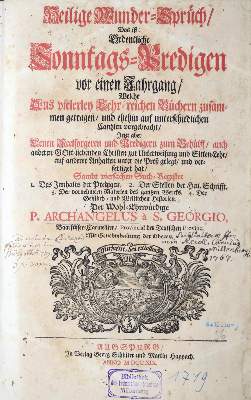 Heilige Wunder-Sprüch/
Das ist:
Ordentliche
Sonntags-Predigen
vor einen Jahrgang/
Welche
Aus vielerley Lehr-reichen Büchern zusam-
men getragen/ und ehehin auf unterschidlichen
Cantzlen vorgebracht/
Jetzt aber
Denen Seelsorgern und Predigern zum Behülff/ auch
anderen GOtt-liebenden Christen zur Unterweisung und Sitten-Lehr/
auf anderer Anhalten unter die Preß gelegt/ und ver-
fertiget hat/
Sambt vierfachen Such-Register
1. Des Innhalts der Predigen. 2. Der Stellen der Heil. Schrifft.
3. Der vornehmen Materien des gantzen Wercks. 4. Der
Geistlich- und Weltlichen Historien.
Der Wohl-Ehrwürdige
P. ARCHANGELUS à S. GEORGIO,
Baarfüsser-Carmeliter, Provincial der Teutschen Provinz.
Mit Genehmhaltung der Obern
AUGSPURG/
In Verlag Georg Schlüter und Martin Happach.
ANNO M DCC XIX.
1719